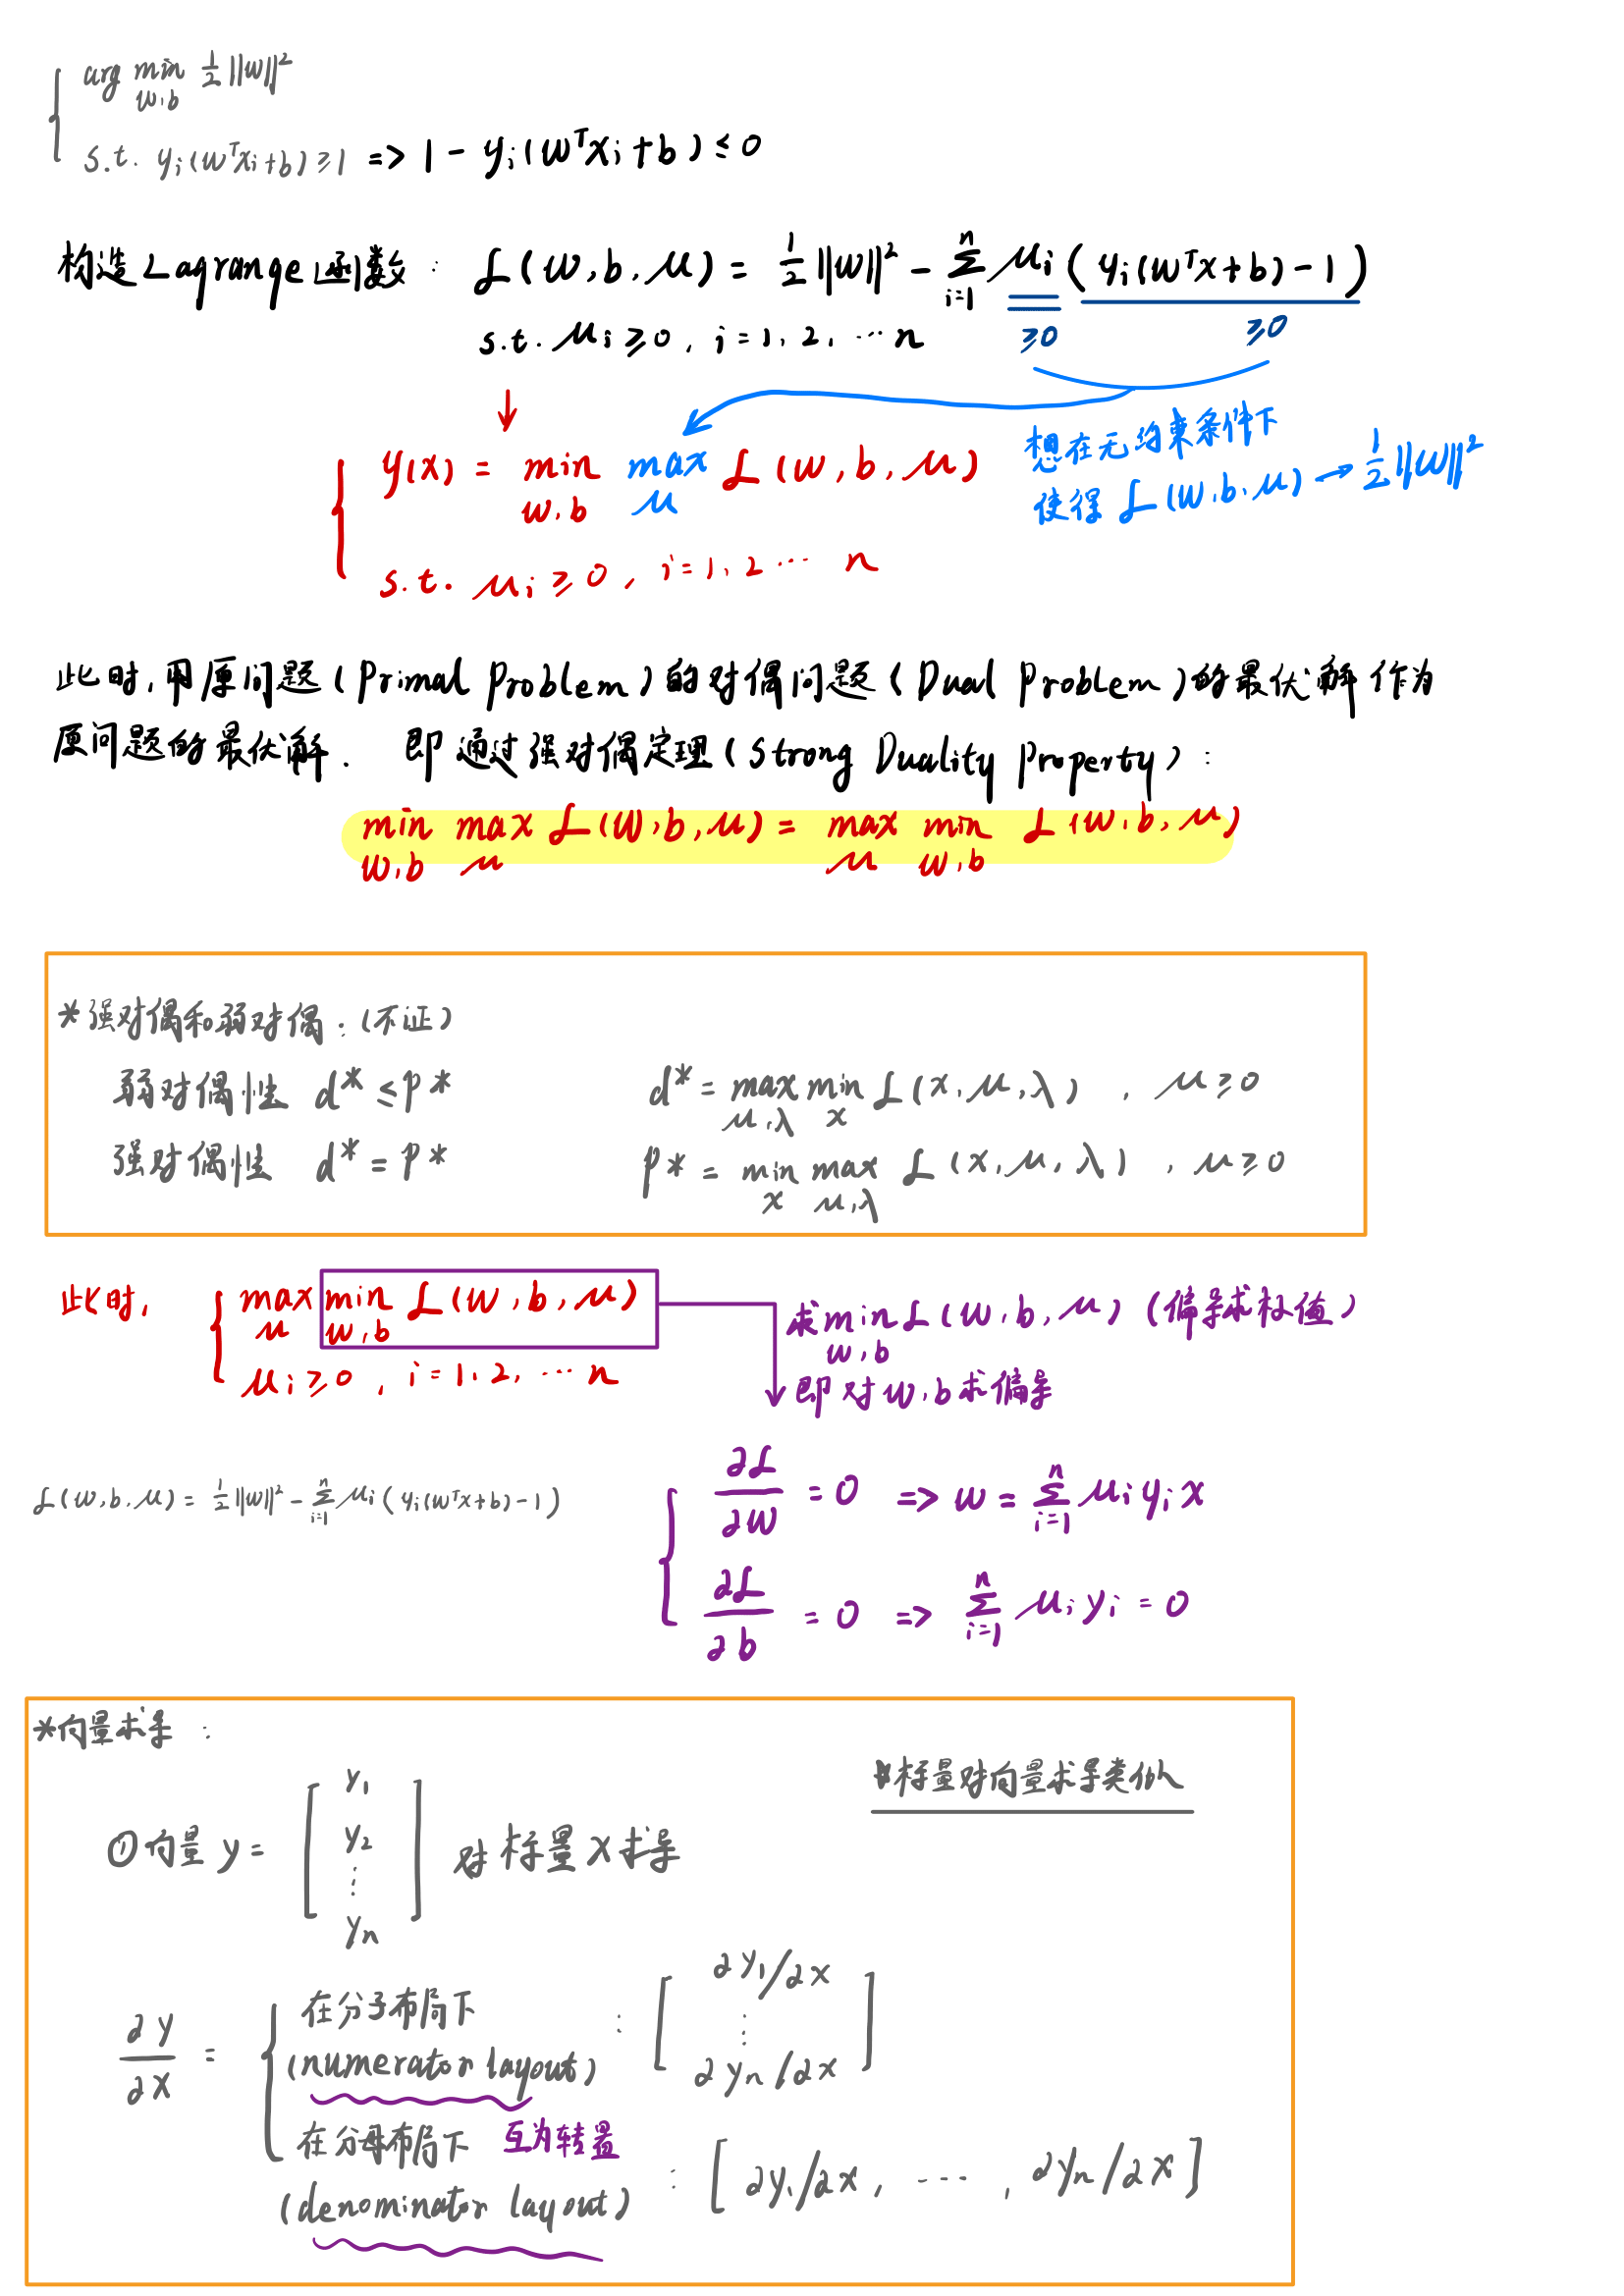 arg min 1/2 ||w||²
w,b
s.t. yᵢ(wᵀxᵢ+b)≥1 => 1 - yᵢ(wᵀxᵢ+b) ≤ 0
构造Lagrange函数: ℒ(w,b,μ) = 1/2 ||w||² - Σᵢ₌₁ⁿ μᵢ(yᵢ(wᵀx+b)-1)
s.t. μᵢ≥0, i=1,2,…n ≥0 ≥0
↓
y(x) = min max ℒ(w,b,μ)
w,b μ
s.t. μᵢ≥0, i=1,2…n
想在无约束条件下
使得 ℒ(w,b,μ) → 1/2 ||w||²
此时,用原问题(Primal Problem)的对偶问题(Dual Problem)的最优解作为
原问题的最优解. 即通过强对偶定理(Strong Duality Property):
min max ℒ(w,b,μ) = max min ℒ(w,b,μ)
w,b μ μ w,b
*强对偶和弱对偶:(不证)
弱对偶性 d* ≤ p* d* = max min ℒ(x,μ,λ), μ≥0
μ,λ x
强对偶性 d* = p* p* = min max ℒ(x,μ,λ), μ≥0
x μ,λ
此时, max min ℒ(w,b,μ)
μ w,b
μᵢ≥0, i=1,2,…n
求min ℒ(w,b,μ)(偏导求极值)
w,b
即对w,b求偏导
ℒ(w,b,μ) = 1/2 ||w||² - Σᵢ₌₁ⁿ μᵢ(yᵢ(wᵀx+b)-1)
∂ℒ/∂w = 0 => w = Σᵢ₌₁ⁿ μᵢyᵢx
∂ℒ/∂b = 0 => Σᵢ₌₁ⁿ μᵢyᵢ = 0
*向量求导:
*标量对向量求导类似
①向量 y = [y₁ y₂ ⋮ yₙ] 对标量x求导
∂y/∂x =
在分子布局下
(numerator layout) : [∂y₁/∂x ⋮ ∂yₙ/∂x]
在分母布局下 互为转置
(denominator layout) : [∂y₁/∂x, ⋯, ∂yₙ/∂x]